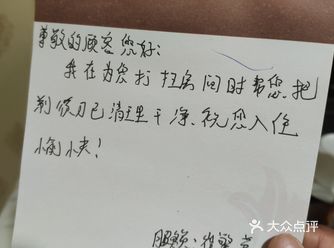 尊敬的顾客您好:
我在为您打扫房间时帮您把
剃须刀已清理干净.祝您入住
愉快!
服务员:
大众点评